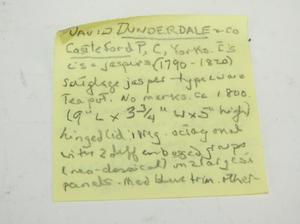 DAVID DUNDERDALE & CO
Castleford P, C, Yorks. E's
(1790-1820)
jasper type ware
Teapot. No marks. Ca 1800.
(9" L x 3 3/4" W x 5" high)
hinged lid octagonal
with 2 diff embossed groups
(neo-classical) in 2 largest
panels. Med blue trim. other